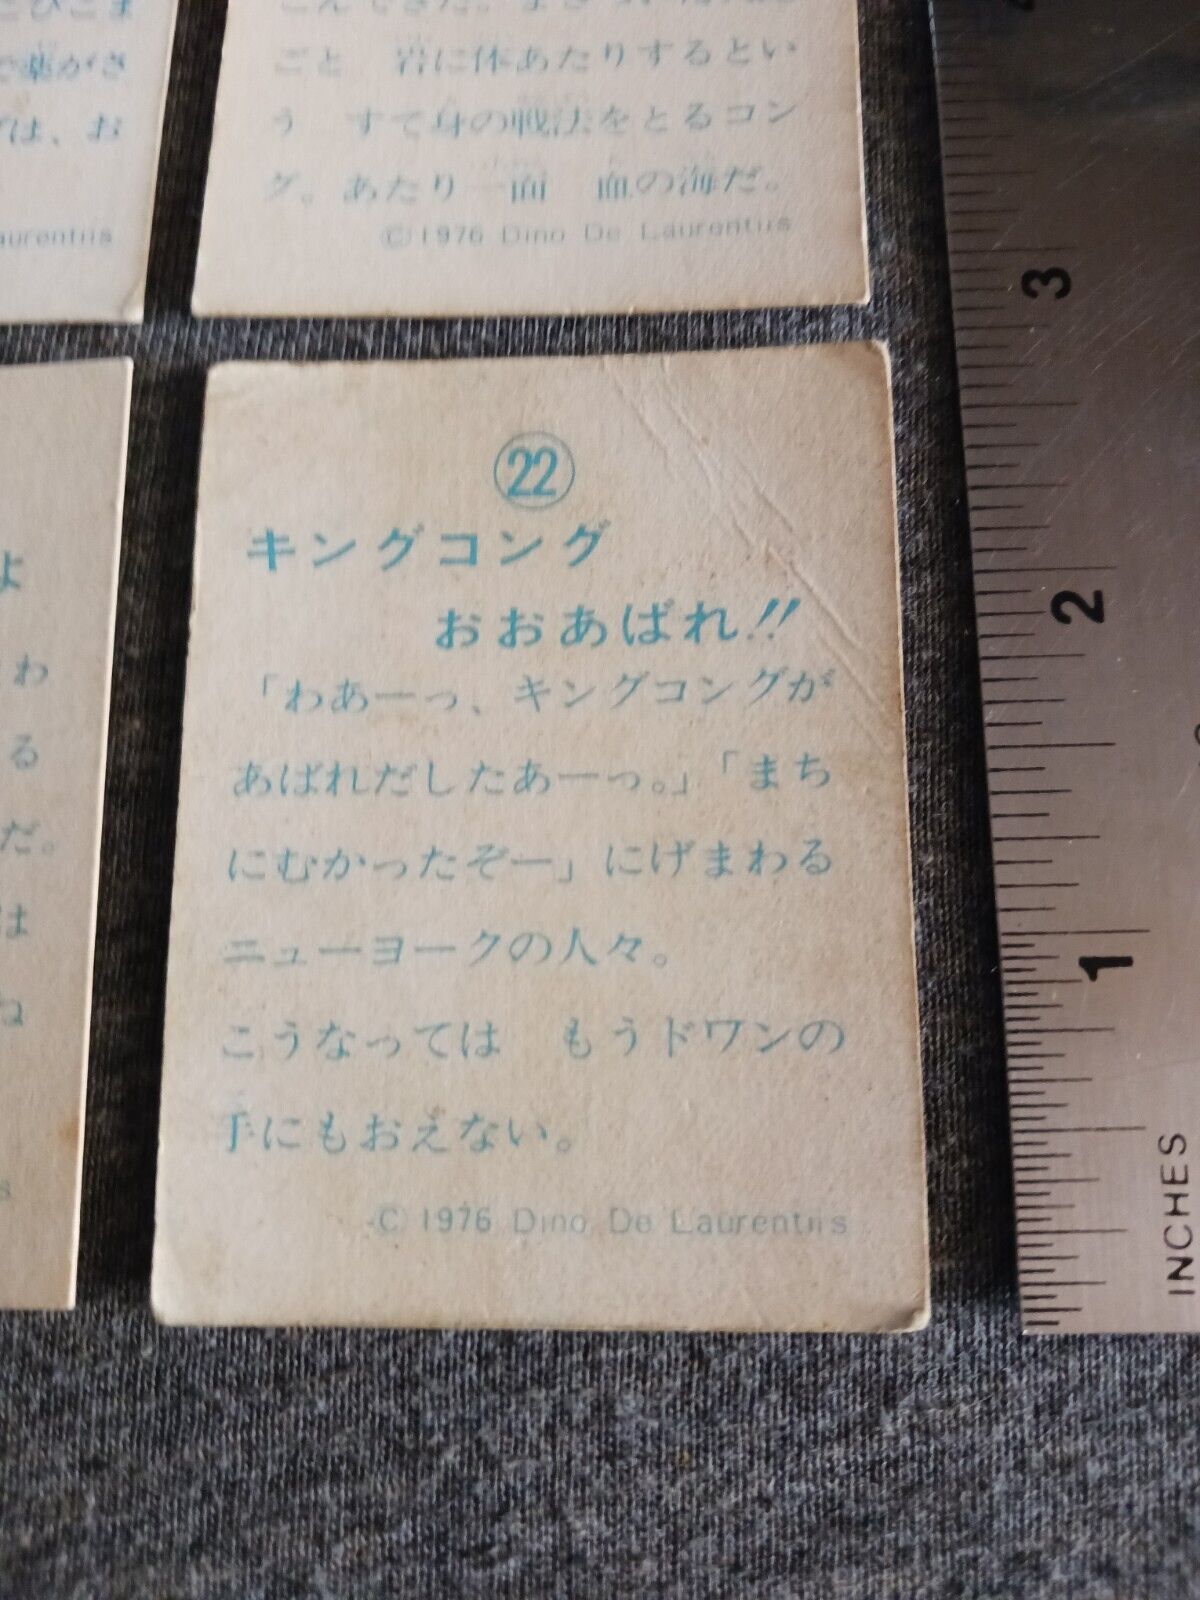 で薬がさ
は、お
aurentiis
ごと 岩に体あたりするとい
う すて身の戦法をとるコン
グ。あたり一面 血の海だ。
©1976 Dino De Laurentiis
よ
わ
る
だ。
は
ね
s
22
キングコング
おおあばれ!!
「わあーっ、キングコングが
あばれだしたあーっ。」「まち
にむかったぞー」にげまわる
ニューヨークの人々。
こうなっては もうドワンの
手にもおえない。
©1976 Dino De Laurentiis
3
2
1
INCHES